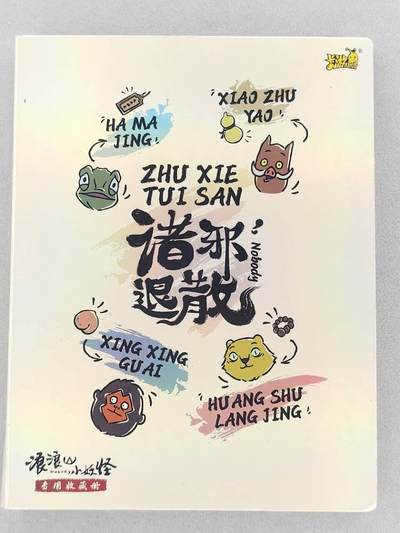 卡游
HA MA
JING
XIAO ZHU
YAO
ZHU XIE
TUI SAN
诸邪
退散
Nobody
XING XING
GUAI
HUANG SHU
LANG JING
浪浪山
小妖怪
专用收藏册